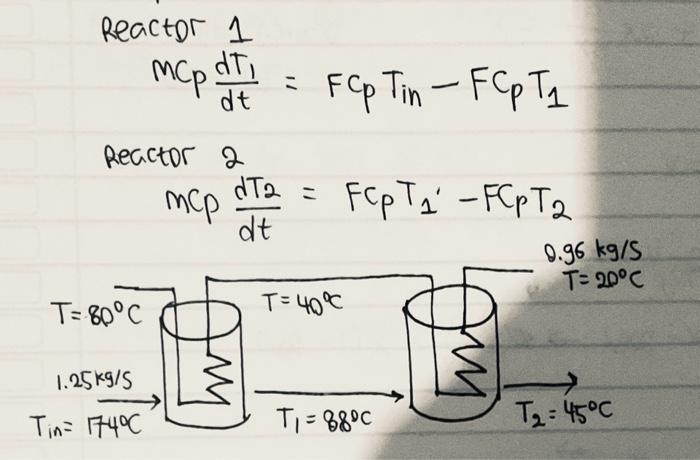 Reactor 1
MCp dT1/dt = FCpTin - FCpT1
Reactor 2
MCp dT2/dt = FCpT1' - FCpT2
0.96 kg/s
T= 20°C
T= 80°C
T= 40°C
1.25 kg/s
Tin= 174°C
T1 = 88°C
T2 = 45°C